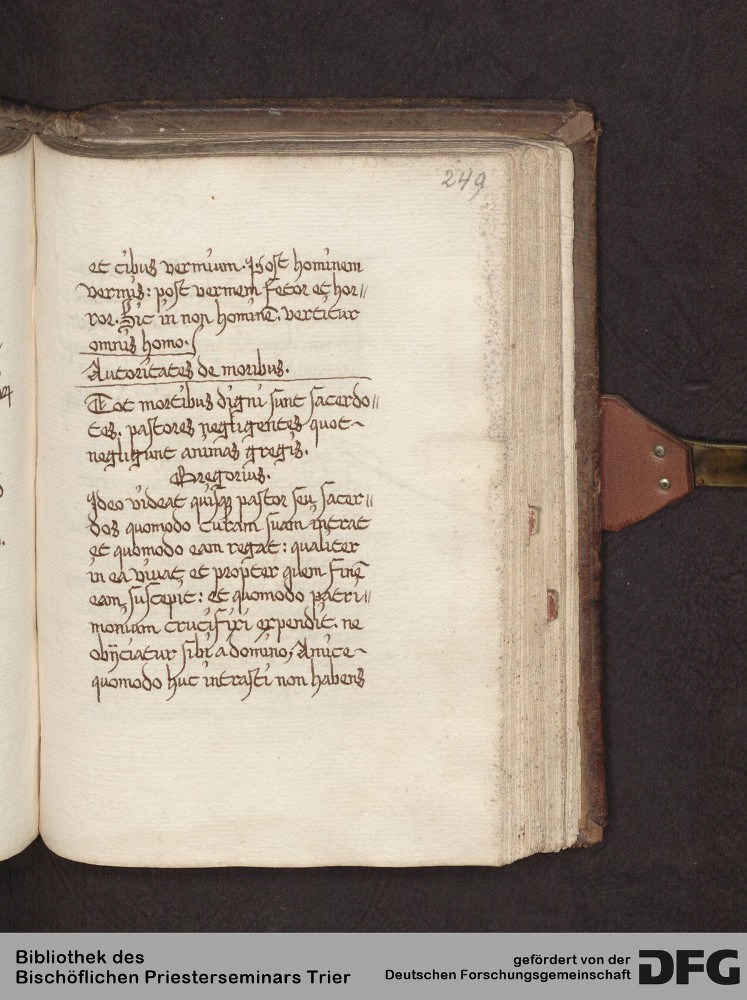 249
et cibus vermium. Post hominem
vermis: post vermem fetor et hor//
ror. Sic in non hominē. vertitur
omnis homo.
Autoritates de moribus.
Tot mortibus digni sunt sacerdo//
tes. pastores negligentes quot~
negligunt animas gregis.
Gregorius.
Ideo videat quisqꝫ pastor seu sacer//
dos quomodo curam suam intrat
et quomodo eam regat: qualiter
in ea vivat, et propter quem finē
eam, suscepit: et quomodo patri//
monium crucifixi expendit. ne
obijciatur sibi a domino, Amice~
quomodo huc intrasti non habens
Bibliothek des
Bischöflichen Priesterseminars Trier
gefördert von der
Deutschen Forschungsgemeinschaft
DFG